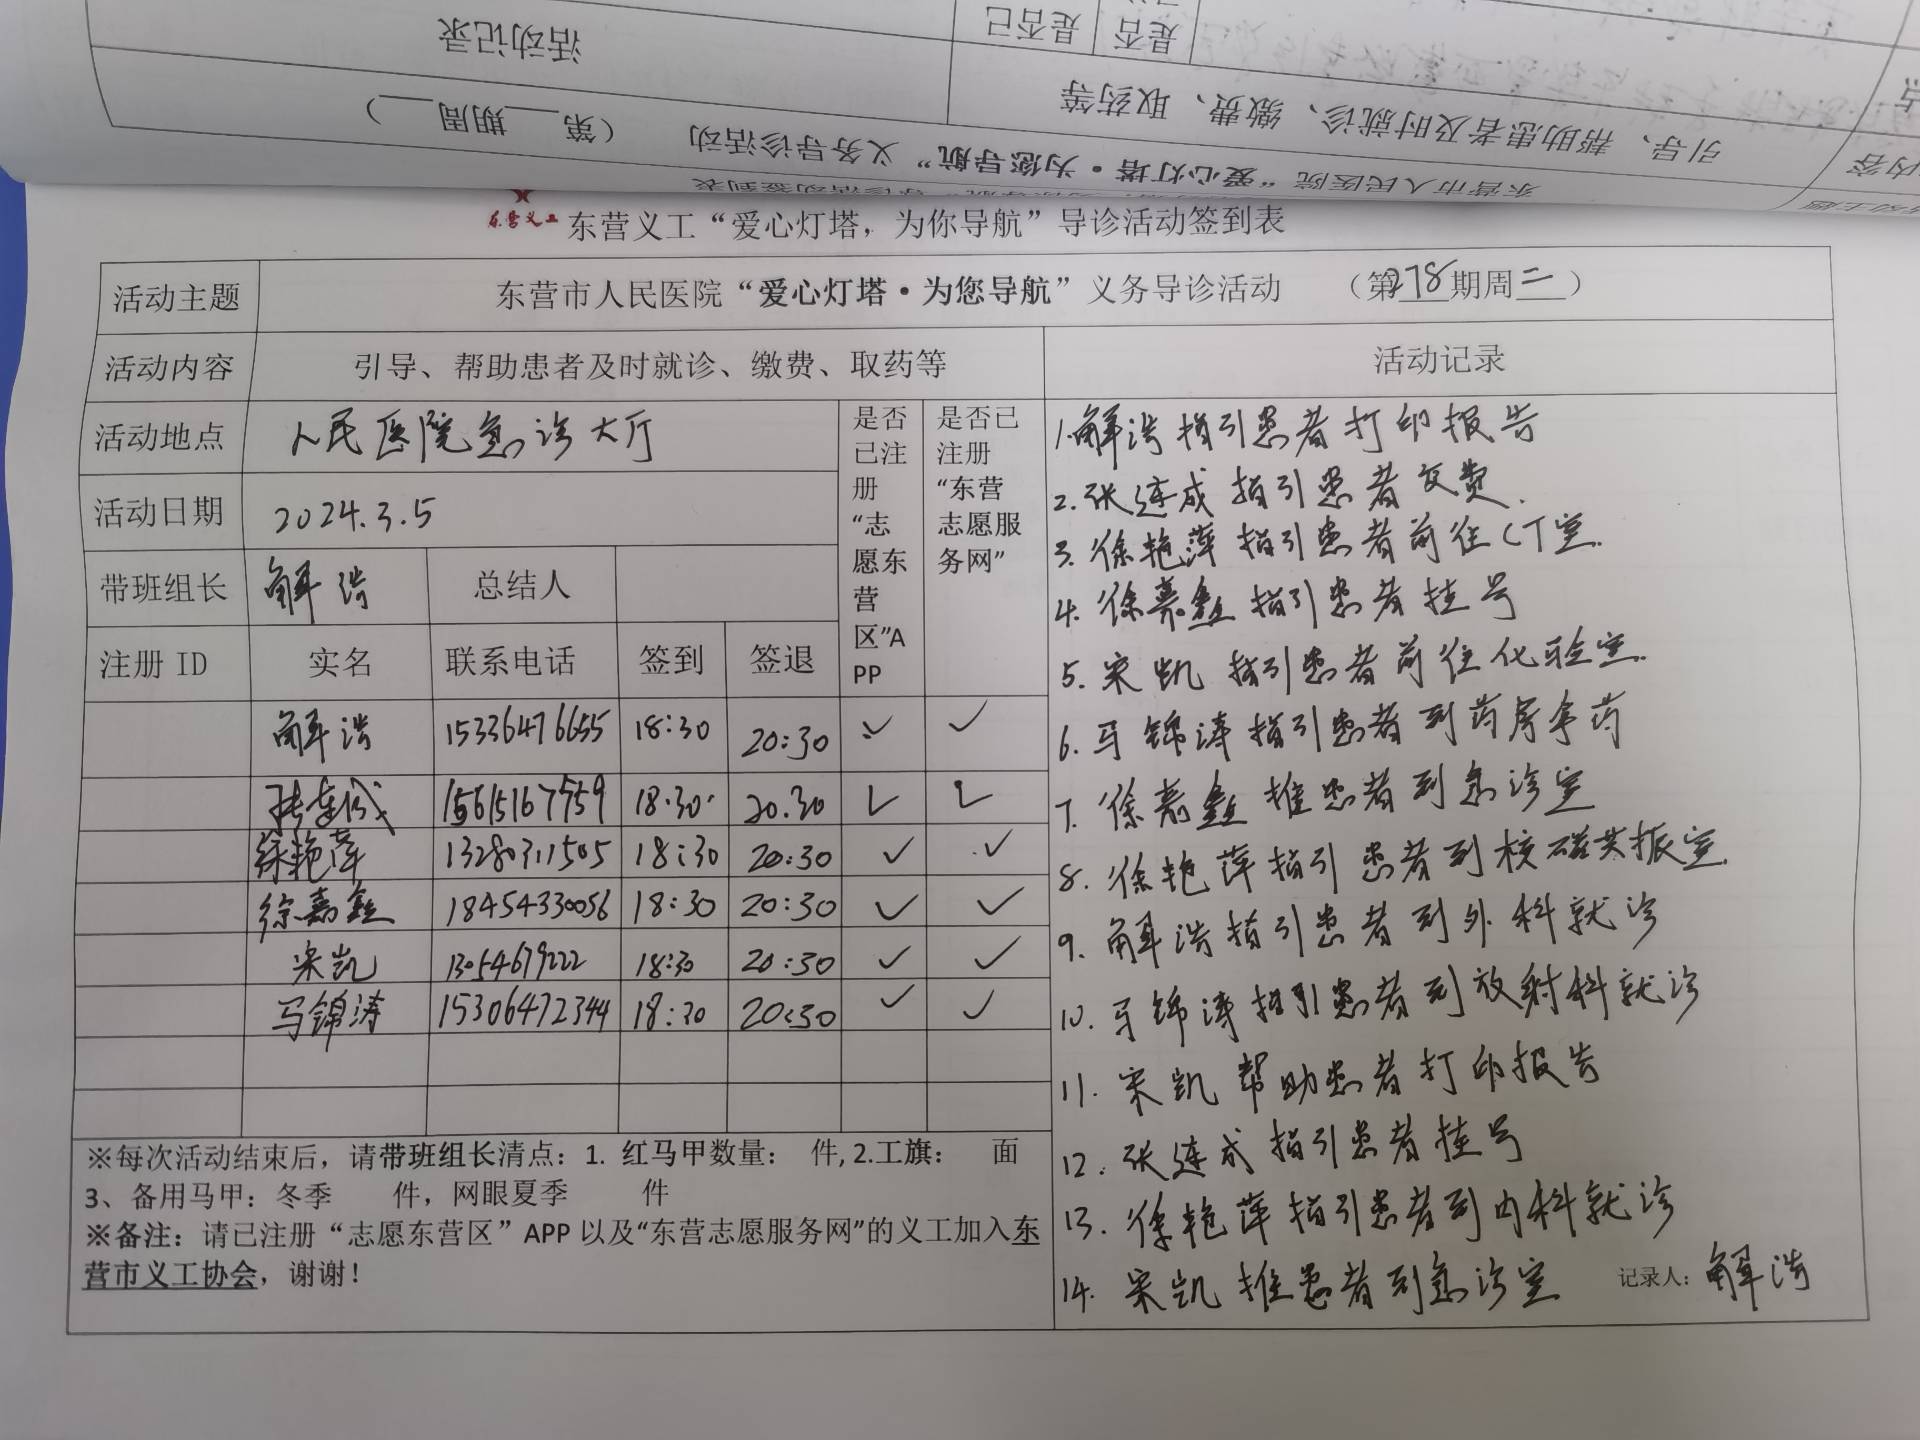 活动记录
是否已
是否
引导、帮助患者及时就诊、缴费、取药等
东营市人民医院“爱心灯塔·为您导航”义务导诊活动 （第 期周 ）
东营义工 东营义工“爱心灯塔，为你导航”导诊活动签到表
活动主题 东营市人民医院“爱心灯塔·为您导航”义务导诊活动 （第278期周二）
活动内容 引导、帮助患者及时就诊、缴费、取药等 活动记录
活动地点 人民医院急诊大厅
活动日期 2024.3.5
带班组长 解浩 总结人
是否
已注
册
“志
愿东
营
区”A
PP
是否已
注册
“东营
志愿服
务网”
注册 ID 实名 联系电话 签到 签退
解浩 15336476655 18:30 20:30 ✓ ✓
张连成 15615167959 18.30. 20.30 ✓ ✓
徐艳萍 13280311505 18:30 20:30 ✓ ✓
徐嘉鑫 18454330056 18:30 20:30 ✓ ✓
宋凯 13054679222 18:30 20:30 ✓ ✓
马锦涛 15306472344 18:30 20:30 ✓ ✓
※每次活动结束后，请带班组长清点：1. 红马甲数量： 件, 2.工旗： 面
3、备用马甲：冬季 件，网眼夏季 件
※备注：请已注册“志愿东营区”APP 以及“东营志愿服务网”的义工加入东
营市义工协会，谢谢！
1.解浩指引患者打印报告
2.张连成指引患者交费.
3.徐艳萍指引患者前往CT室.
4.徐嘉鑫指引患者挂号
5.宋凯指引患者前往化验室.
6.马锦涛指引患者到药房拿药
7.徐嘉鑫推患者到急诊室
8.徐艳萍指引患者到核磁共振室.
9.解浩指引患者到外科就诊
10.马锦涛指引患者到放射科就诊
11.宋凯帮助患者打印报告
12.张连成指引患者挂号
13.徐艳萍指引患者到内科就诊
14.宋凯推患者到急诊室
记录人：解浩